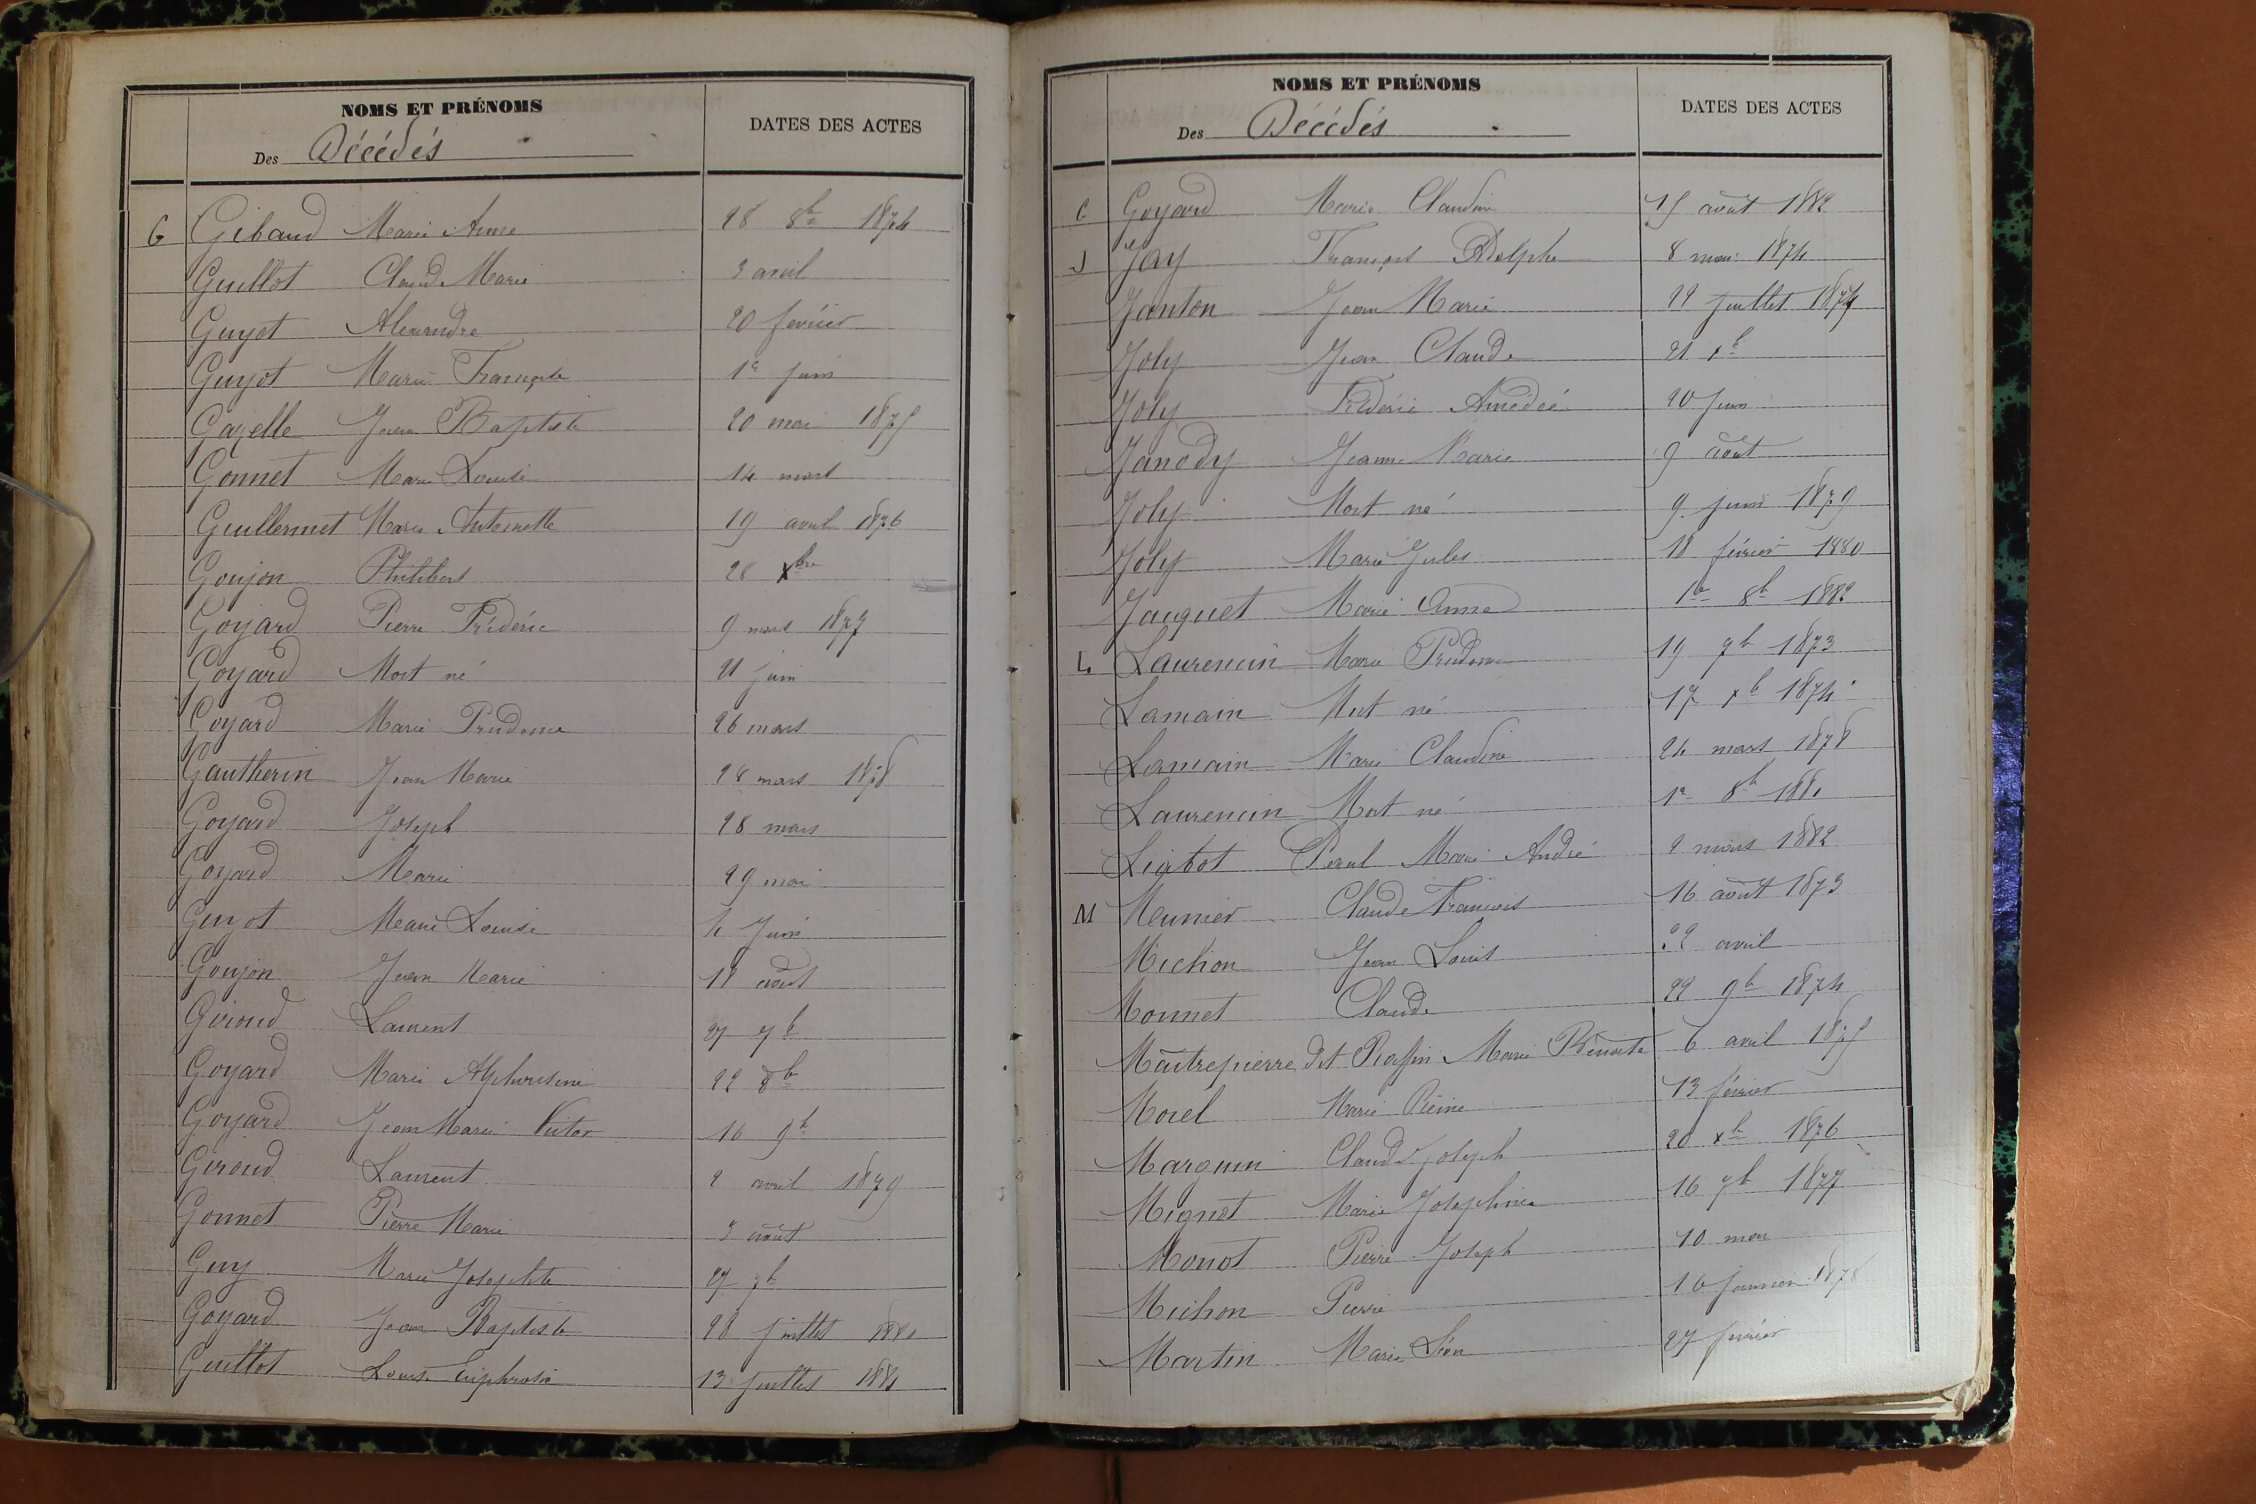 NOMS ET PRÉNOMS
DATES DES ACTES
Des Décédés
G Gibaud Marie Anne 28 8b 1874
Guillot Claude Marie 3 avril
Guyot Alexandre 20 février
Guyot Marie Françoise 1er juin
Gazelle Jean Baptiste 20 mai 1875
Gonnet Marie Louise 14 mars
Guillermet Marie Antoinette 19 avril 1876
Goujon Philibert 28 xbre
Goyard Pierre Frédéric 9 mars 1877
Goyard Mort né 21 juin
Goyard Marie Prudence 26 mars
Gautherin Jean Marie 28 mars 1878
Goyard Joseph 28 mars
Goyard Marie 29 mai
Guyot Marie Louise 4 juin
Goujon Jean Marie 11 août
Giroud Laurent 27 7b
Goyard Marie Alphonsine 22 8b
Goyard Jean Marie Victor 16 9b
Giroud Laurent 2 avril 1879
Gonnet Pierre Marie 3 août
Guy Marie Josephte 27
Goyard Jean Baptiste 28 juillet 1880
Guillot Louise Euphrosie 13 juillet 1881
NOMS ET PRÉNOMS
DATES DES ACTES
Des Décédés
G Goyard Marie Claudine 15 août 1882
J Jay François Adolphe 8 mai 1874
Janton Jean Marie 22 juillet 1874
Joly Jean Claude 21 xb
Joly Frédéric Amédée 20 juin
Janody Jeanne Marie 9 août
Joly Mort né 9 juin 1879
Joly Marie Jules 18 février 1880
Jauquet Marie Anne 1er 8b 1882
L Laurencin Marie Prudence 19 7b 1873
Lamain Mort né 17 xb 1874
Lamain Marie Claudine 24 mars 1878
Laurencin Mort né 1er 8b 1881
Liabot Paul Marie André 2 mars 1882
M Meunier Claude François 16 août 1873
Michon Jean Louis 22 avril
Monnet Claude 22 9b 1874
Maîtrepierre dit Piaffin Marie Benoite 6 avril 1875
Morel Marie Reine 13 février
Marguin Claude Joseph 20 xb 1876
Mignot Marie Josephine 16 7b 1877
Monot Pierre Joseph 10 mai
Michon Pierre 16 janvier 1878
Martin Marie Léon 27 février